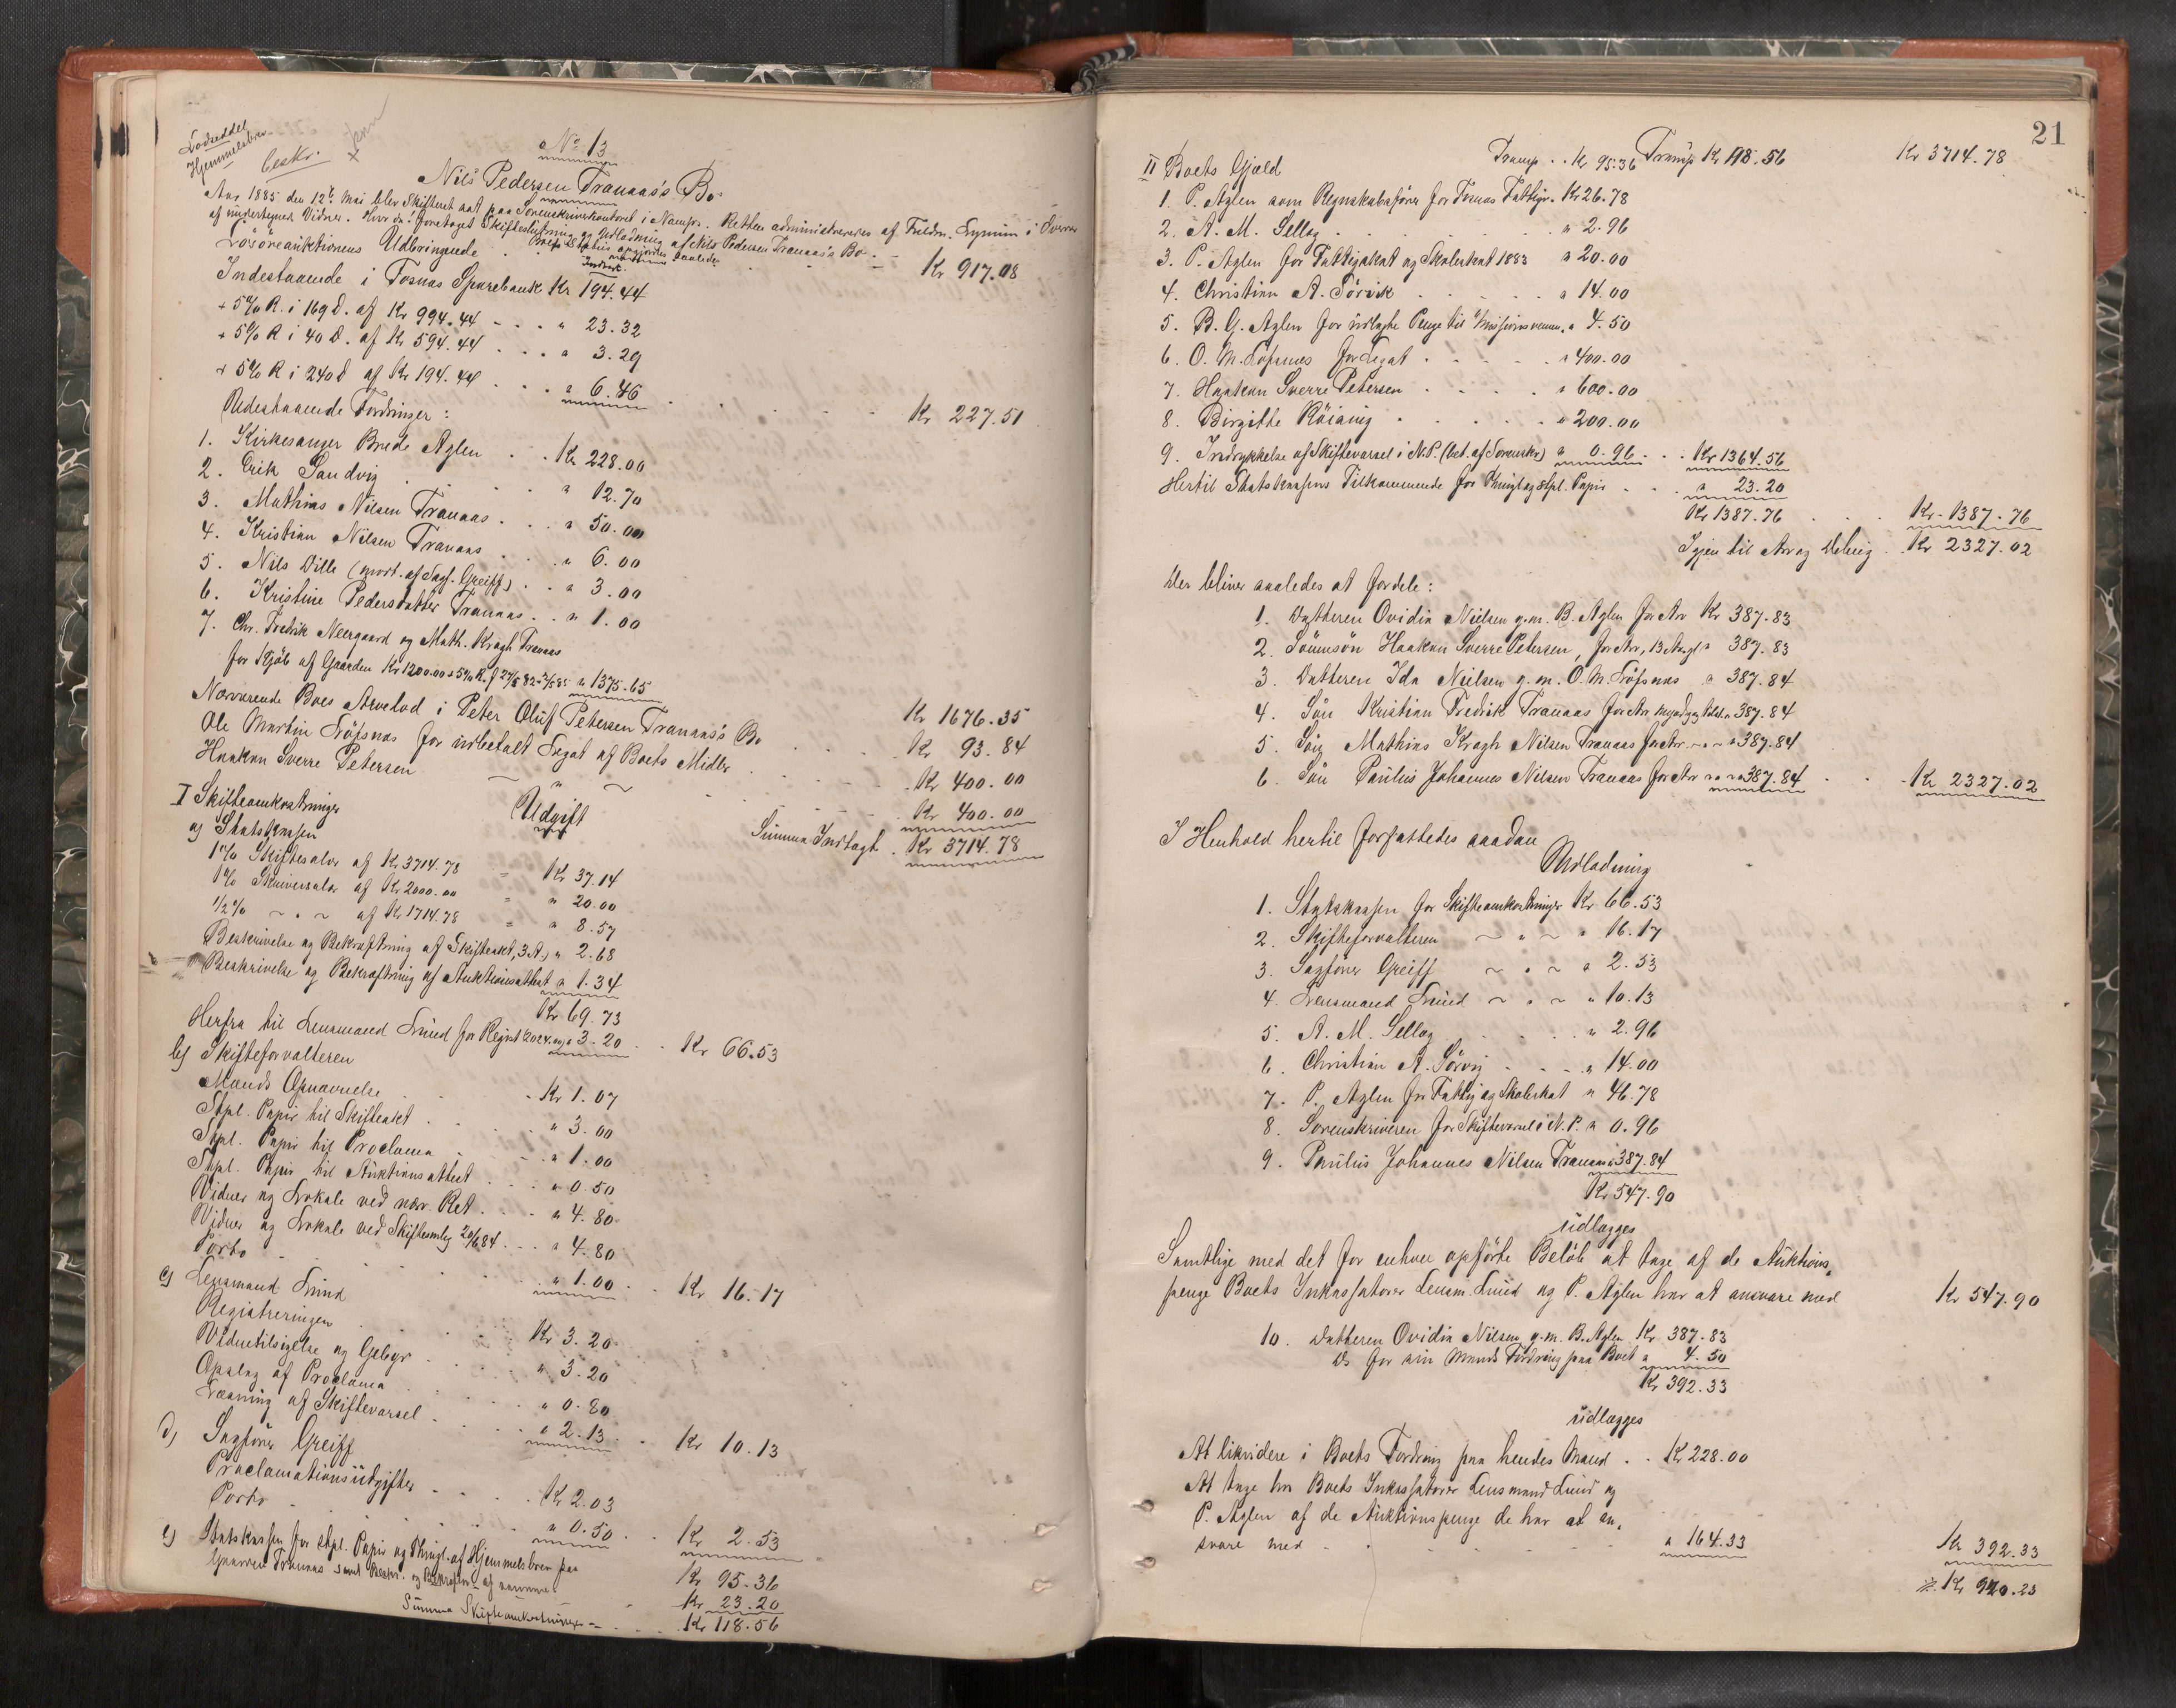 Lodseddel
Hjemmelsbrev
beskr.
No 13
Nils Pedersen Tranaas's Bo
Aar 1885 den 12te Mai blev Skifteret sat paa Sorenskriverkontoret i Namsos. Retten administreredes af Fuldm. Lysnum i Overvær
af undertegnede Vidner. Hvor da: foretoges Skifteslutning og Udlodning af Nils Pedersen Tranaas's Bo.
Boets Status opgjordes saaledes
Indtægt
Løsøreauktionens Udbringende . . . Kr 917.08
Indestaaende i Fosnes Sparebank Kr 194.44
+ 5% R. i 169 D. af Kr 994.44 - - - " 23.32
+ 5% R i 40 D. af Kr 594.44 . . . " 3.29
+ 5% R i 240 D af Kr 194.44 . . . " 6.46 . . . Kr 227.51
Udestaaende Fordringer:
1. Kirkesanger Brede Aglen . . Kr 228.00
2. Erik Sandvig . . . " 12.70
3. Mathias Nilsen Tranaas . . . " 50.00
4. Kristian Nilsen Tranaas . . " 6.00
5. Nils Dille (modt. af Sagf. Greiff) . . " 3.00
6. Kristine Pedersdatter Tranaas . . " 1.00
7. Chr. Fredrik Neergaard og Math. Kragh Tranaas
for Kjøb af Gaarden Kr 1200.00 + 5% R. f 27/6 82 - 2/5 85 " 1375.65
Kr 1676.35
Nærværende Boes Arvelod i Peter Oluf Petersen Tranaas's Bo . . . Kr 93.84
Ole Martin Løfsnæs for udbetalt Legat af Boets Midler . . . Kr 400.00
Haakon Sverre Petersen ~ " ~ Kr 400.00
Summa Indtægt . Kr 3714.78
Udgift
I Skifteomkostninger
a) Statskassen
1% Skiftesalær af Kr 3714.78 = Kr 37.14
1% Skriversalær af Kr 2000.00 = " 20.00
1/2% ~ " ~ af Kr 1714.78 = " 8.57
Beskrivelse og Bekræftning af Skifteakt, 3 A, " 2.68
Beskrivelse og Bekræftning af Auktionsattest " 1.34
Kr 69.73
Herfra til Lensmand Lund for Regist. " 3.20 . . Kr 66.53
b) Skifteforvalteren
Mænds Opnævnelse . . Kr 1.07
Stpl. Papir til Skifteakt . . . " 3.00
Stpl. Papir til Proclama . . . " 1.00
Stpl. Papir til Auktionsattest . . . " 0.50
Vidner og Lokale ved nærv. Ret . . . " 4.80
Vidner og Lokale ved Skiftesmlg 20/6 84 . . . " 4.80
Porto . . . " 1.00 . . Kr 16.17
c) Lensmand Lund
Registreringen . . . Kr 3.20
Vidnetilsigelse og Gebyr . . . " 3.20
Opslag af Proclama . . . " 0.80
Læsning af Skiftevarsel . . . " 2.13 . . Kr 10.13
d) Sagfører Greiff
Proclamationsudgifter . . . Kr 2.03
Porto . . . " 0.50 . . Kr 2.53
Kr 95.36
e) Statskassen for stpl. Papir og Thingl. af Hjemmelsbrev paa
Gaarden Tranaas samt Beskr. og Bekræftn. af samme . Kr 23.20
Summa Skifteomkostninger . . Kr 118.56
21
Transp . . Kr 95.36 Transp Kr 118.56 Kr 3714.78
II Boets Gjæld
1. P. Aglen som Regnskabsfører for Fosnes Fattigv. Kr 26.78
2. A. M. Sellæg . . . " 2.96
3. P. Aglen for Fattigskat og Skoleskat 1883 " 20.00
4. Christian A. Sørvik . . . " 14.00
5. B. G. Aglen for udlagte Penge til Missionsvennen " 4.50
6. O. M. Løfsnes for Legat . . . " 400.00
7. Haakon Sverre Petersen . . . " 600.00
8. Birgitte Röianig . . . " 200.00
9. Indrykkelse af Skiftevarsel i N.P. (bet. af Sorenskr) " 0.96 . . Kr 1364.56
Hertil Statskassens Tilkommende for Thingl og stpl. Papir . . . " 23.20
Kr 1387.76 . . . Kr 1387.76
Igjen til Arv og Deling . . Kr 2327.02
Der bliver saaledes at fordele:
1. Datteren Ovidia Nielsen g.m. B. Aglen for Arv Kr 387.83
2. Sønnesøn Haakon Sverre Petersen, for Arv, 13 Aar gl " 387.83
3. Datteren Ida Nielsen g.m. O. M. Løfsnæs " 387.84
4. Søn Kristian Fredrik Tranaas for Arv myndig og tilst. " 387.84
5. Søn Mathias Kragh Nilsen Tranaas for Arv ~ " ~ " 387.84
6. Søn Paulus Johannes Nilsen Tranaas for Arv ~ " ~ " 387.84 . . . Kr 2327.02
I Henhold hertil forfattedes saadan
Udlodning
1. Statskassen for Skifteomkostninger Kr 66.53
2. Skifteforvalteren ~ " ~ " 16.17
3. Sagfører Greiff ~ " ~ " 2.53
4. Lensmand Lund ~ " ~ " 10.13
5. A. M. Sellæg . . . " 2.96
6. Christian A. Sørvig . . . " 14.00
7. P. Aglen for Fattig og Skoleskat " 46.78
8. Sorenskriveren for Skiftevarsel i N.P. " 0.96
9. Paulus Johannes Nilsen Tranaas " 387.84
Kr 547.90
udlægges
Samtlige med det for enhver opførte Beløb at tage af de Auktions-
penge Boets Inkassatorer Lensm. Lund og P. Aglen har at ansvare med Kr 547.90
10. Datteren Ovidia Nilsen g.m. B. Aglen Kr 387.83
Ds for sin Mands Fordring paa Boet " 4.50
Kr 392.33
udlægges
At likvidere i Boets Fordring paa hendes Mand . . Kr 228.00
At tage hos Boets Inkassatorer Lensmand Lund og
P. Aglen af de Auktionspenge de har at an-
svare med . . . " 164.33 Kr 392.33
Kr 940.23